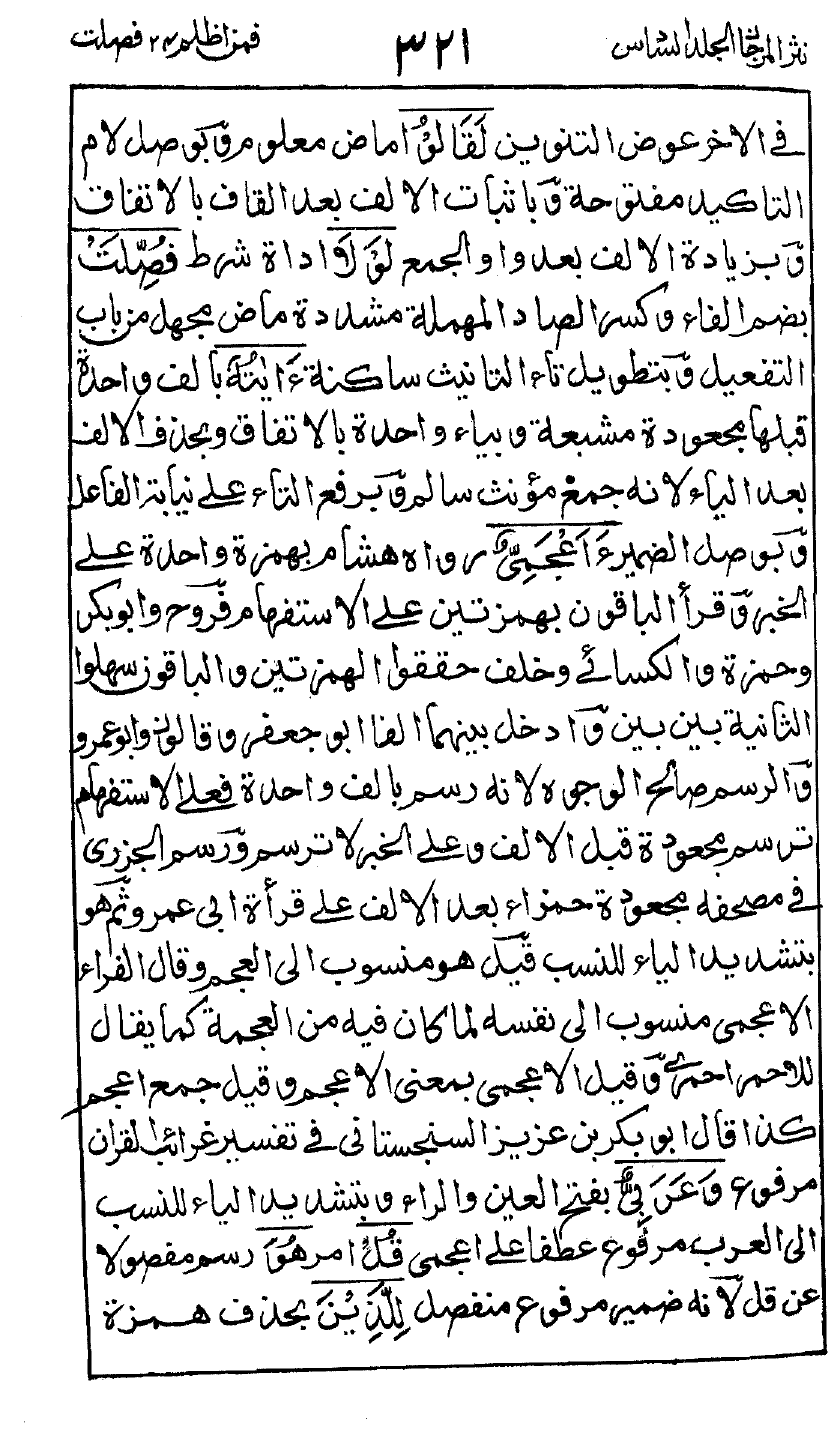 نثر المرجان الجلد السادس ٣٢١ فمن اظلم ٢٤ فصلت
في الاخر عوض التنوين لَقَالُوْا ماض معلوم وَبوصل لام
التاكيد مفتوحة وَباثبات الالف بعد القاف بالاتفاق
وَبزيادة الالف بعد واو الجمع لَوْلَا اداة شرط فُصِّلَتْ
بضم الفاء وكسر الصاد المهملة مشددة ماض مجهل من باب
التفعيل وَبتطويل تاء التانيث ساكنة ءَايٰتُهٗ بالف واحدة
قبلها مجعودة مشبعة وبياء واحدة بالاتفاق وبحذف الالف
بعد الياء لانه جمع مؤنث سالم وَبرفع التاء على نيابة الفاعل
وَبوصل الضمير ءَاَعْجَمِيٌّ رواه هشام بهمزة واحدة على
الخبر وَقرأ الباقون بهمزتين على الاستفهام فَروح وابوبكر
وحمزة والكسائے وخلف حققوا الهمزتين والباقون سهلوا
الثانية بين بين وَادخل بينهما الفا ابو جعفر وقالون وابو عمرو
وَالرسم صالح الوجوه لانه رسم بالف واحدة فعلى الاستفهام
ترسم مجعودة قبل الالف وعلى الخبر لا ترسم وَرسم الجزرى
في مصحفه مجعودة حمراء بعد الالف على قرأة ابى عمرو ثَم هو
بتشديد الياء للنسب قَيل هو منسوب الى العجم وقال الفراء
الاعجمى منسوب الى نفسه لما كان فيه من العجمة كما يقال
للاحمر احمرى وَقيل الاعجمى بمعنى الاعجم وقيل جمع اعجم
كذا قال ابو بكر بن عزيز السنجستانى في تفسير غرائب القران
مرفوع وَعَرَبِيٌّ بفتح العين والراء وبتشديد الياء للنسب
الى العرب مرفوع عطفا على اعجمى قُلْ امر هُوَ رسم مفصولا
عن قل لَانه ضمير مرفوع منفصل لِلَّذِيْنَ بحذف همزة